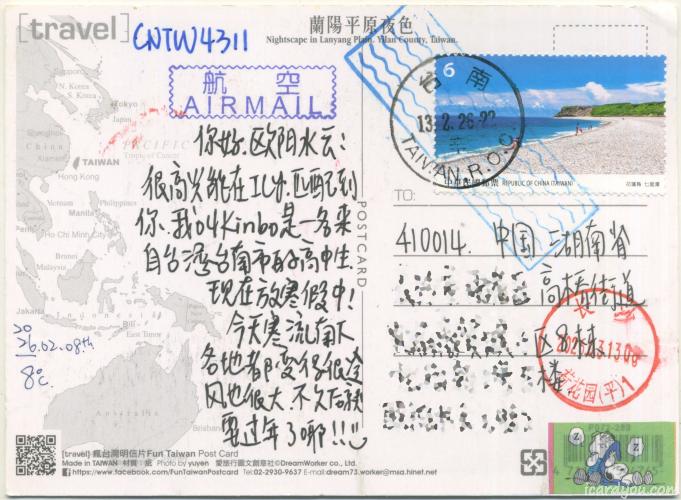 [travel]
CNTW4311
蘭陽平原夜色
Nightscape in Lanyang Plain, Yilan County, Taiwan.
航空
AIRMAIL
你好,欧阳水云:
很高兴能在ICU匹配到
你,我04Kinbo是一名来
自台湾台南市的高中生,
现在放寒假中!
今天寒流南下
各地都变得很
风也很大,不久后就
要过年了耶!!!
20
26.02.08th
8℃
6
台南
TAIWAN R.O.C.
中華民國郵票 REPUBLIC OF CHINA (TAIWAN)
花蓮縣 七星潭
TO:
POSTCARD
410014. 中国 湖南省
高桥街道
区8栋
楼
长沙
荷花园(平)1
PACIFIC
N. Korea
S. Korea
Tokyo
Japan
Shanghai
China
TAIWAN
Hong Kong
Vietnam
Manila
Philippines
Ho Chi Minh City
Brunei
Jakarta
Indonesia
Bali
East Timor
Australia
Brisbane
[travel] 瘋台灣明信片Fun Taiwan Post Card
Made in TAIWAN 材質:紙 Photo by yuyen 愛旅行圖文創意社©DreamWorker co., Ltd.
https://www.facebook.com/FunTaiwanPostcard Tel: 02-2930-9637 E-mail: dream73.worker@msa.hinet.net
Z
Z
icarayou.com